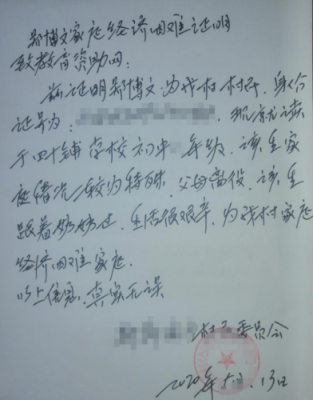 博文家庭经济困难证明
致教育资助网:
兹证明 博文为我村村民,身份
证号为: ,现就读
于四十铺学校初中 年级,该生家
庭情况 较为特殊,父母 ,该生
跟着奶奶过,生活很艰辛,为我村家庭
经济困难家庭.
以上信息,真实无误
村 委员会
2020年5月13日